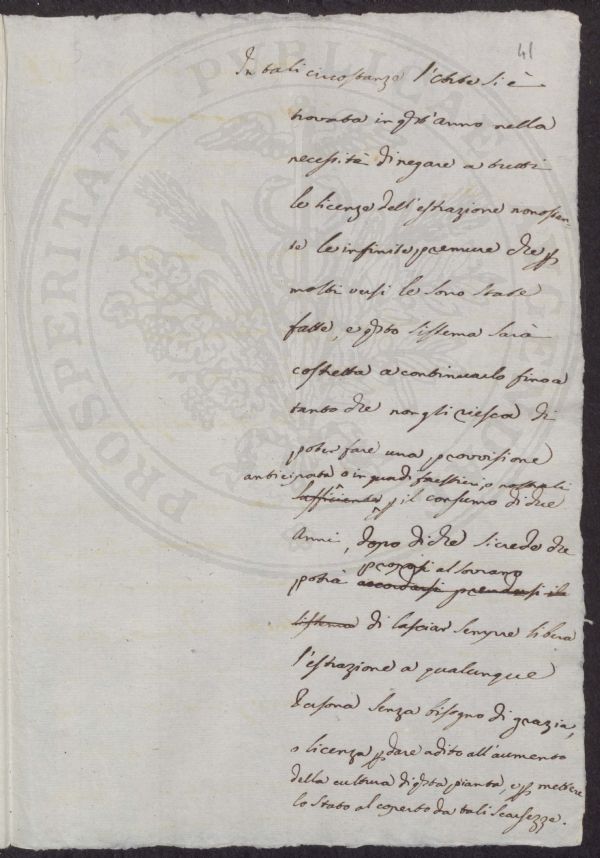 41
In tali circostanze l'Orto si è
trovato in qto anno nella
necessità di negare a tutti
le licenze dell'estrazione nonostan-
te le infinite premure che p
molti versi le sono state
fatte, e qto sistema sarà
costretta a continuarlo fino a
tanto che non gli riesca di
poter fare una provvisione
anticipata o in quadi forestieri, o nostrali
sufficiente p il consumo di due
anni, dopo di che si crede che
proporsi al sovrano
potrà accordarsi prendersi il
sistema di lasciar sempre libera
l'estrazione a qualunque
Persona senza bisogno di grazia,
o licenza p dare adito all'aumento
della cultura di qta pianta, e p mettere
lo Stato al coperto da tali scarsezze.
PROSPERITATI PUBLICAE AUGENDAE